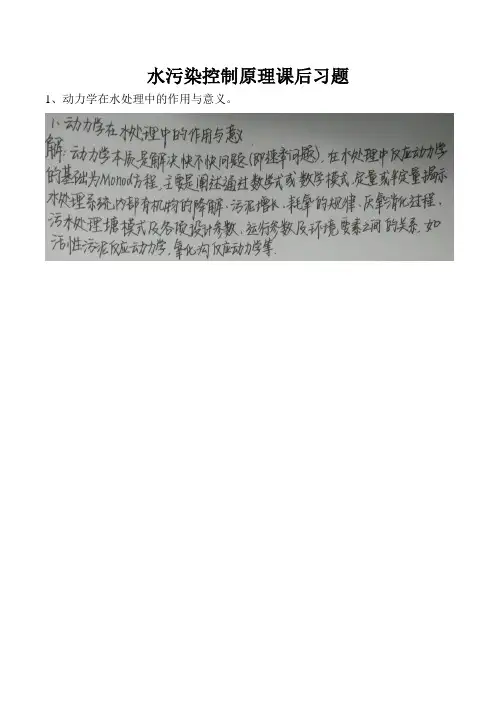 水污染控制原理课后习题
1、动力学在水处理中的作用与意义。
1、动力学在水处理中的作用与意义
解:动力学本质是解决快不快问题(即速率问题),在水处理中反应动力学
的基础为Monod方程,主要是阐述通过数学式或数学模式,定量或半定量揭示
水处理系统内部有机物的降解、污泥增长、耗氧的规律、厌氧消化过程、
污水处理塘模式及各项设计参数、运行参数及环境要素之间的关系,如
活性污泥反应动力学,氧化沟反应动力学等.